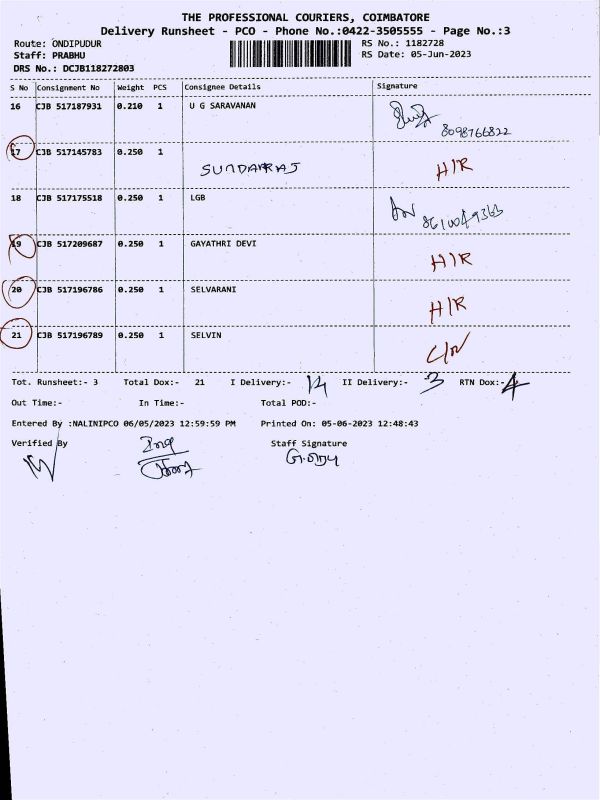 THE PROFESSIONAL COURIERS, COIMBATORE
Delivery Runsheet - PCO - Phone No.:0422-3505555 - Page No.:3
Route: ONDIPUDUR RS No.: 1182728
Staff: PRABHU RS Date: 05-Jun-2023
DRS No.: DCJB118272803
S No Consignment No Weight PCS Consignee Details Signature
16 CJB 517187931 0.210 1 U G SARAVANAN
8098766822
17 CJB 517145783 0.250 1
SUNDARRAJ H/R
18 CJB 517175518 0.250 1 LGB
8610049363
19 CJB 517209687 0.250 1 GAYATHRI DEVI
H/R
20 CJB 517196786 0.250 1 SELVARANI
H/R
21 CJB 517196789 0.250 1 SELVIN
Tot. Runsheet:- 3 Total Dox:- 21 I Delivery:- 14 II Delivery:- 3 RTN Dox:- 4
Out Time:- In Time:- Total POD:-
Entered By :NALINIPCO 06/05/2023 12:59:59 PM Printed On: 05-06-2023 12:48:43
Verified By Staff Signature